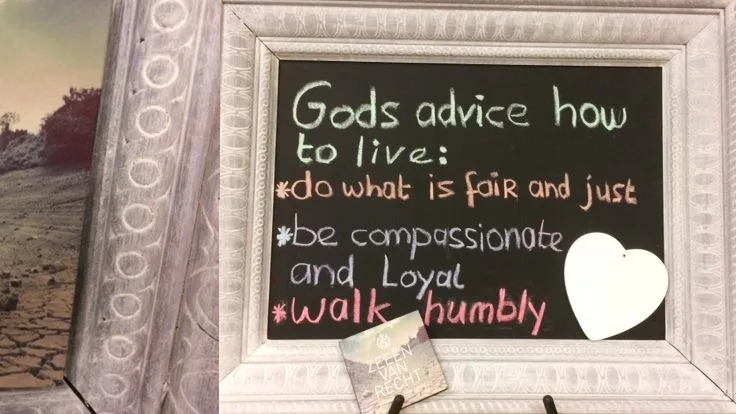 Gods advice how
to live:
*do what is faiR and just
*be compassionate
and Loyal
*walk humbly
ZEGEN
VAN
RECHT